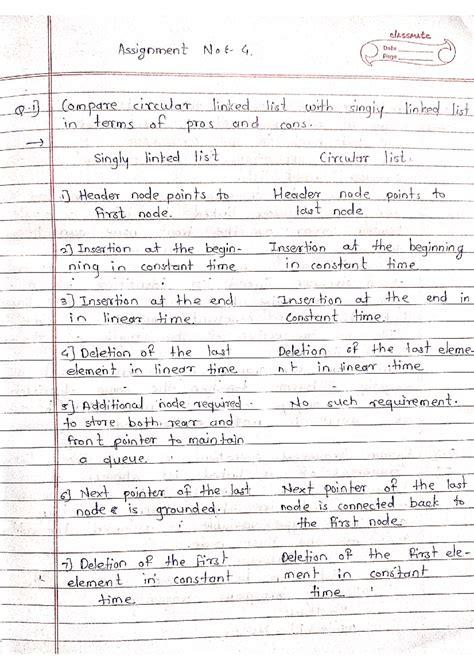 classmate
Date
Page
Assignment No:- 4.
Q.1] Compare circular linked list with singly linked list
in terms of pros and cons.
→
Singly linked list Circular list.
1) Header node points to Header node points to
first node. last node
2) Insertion at the begin- Insertion at the beginning
ning in constant time in constant time
3) Insertion at the end Insertion at the end in
in linear time. Constant time.
4) Deletion of the last Deletion of the last eleme-
element in linear time nt in linear time
5) Additional node required. No such requirement.
to store both rear and
front pointer to maintain
a queue.
6) Next pointer of the last Next pointer of the last
node is grounded. node is connected back to
the first node
7) Deletion of the first Deletion of the first ele-
element in constant ment in constant
time. time